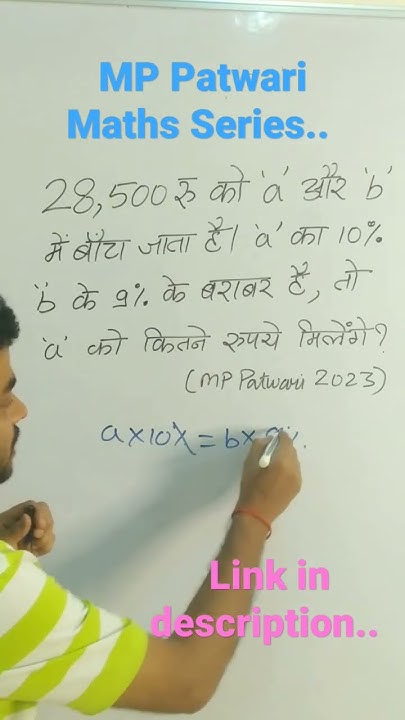 MP Patwari
Maths Series..
28,500 रु को 'a' और 'b'
में बाँटा जाता है। 'a' का 10%
'b' के 9% के बराबर है, तो
'a' को कितने रुपये मिलेंगे?
(MP Patwari 2023)
a×10% = b×9%.
Link in
description..